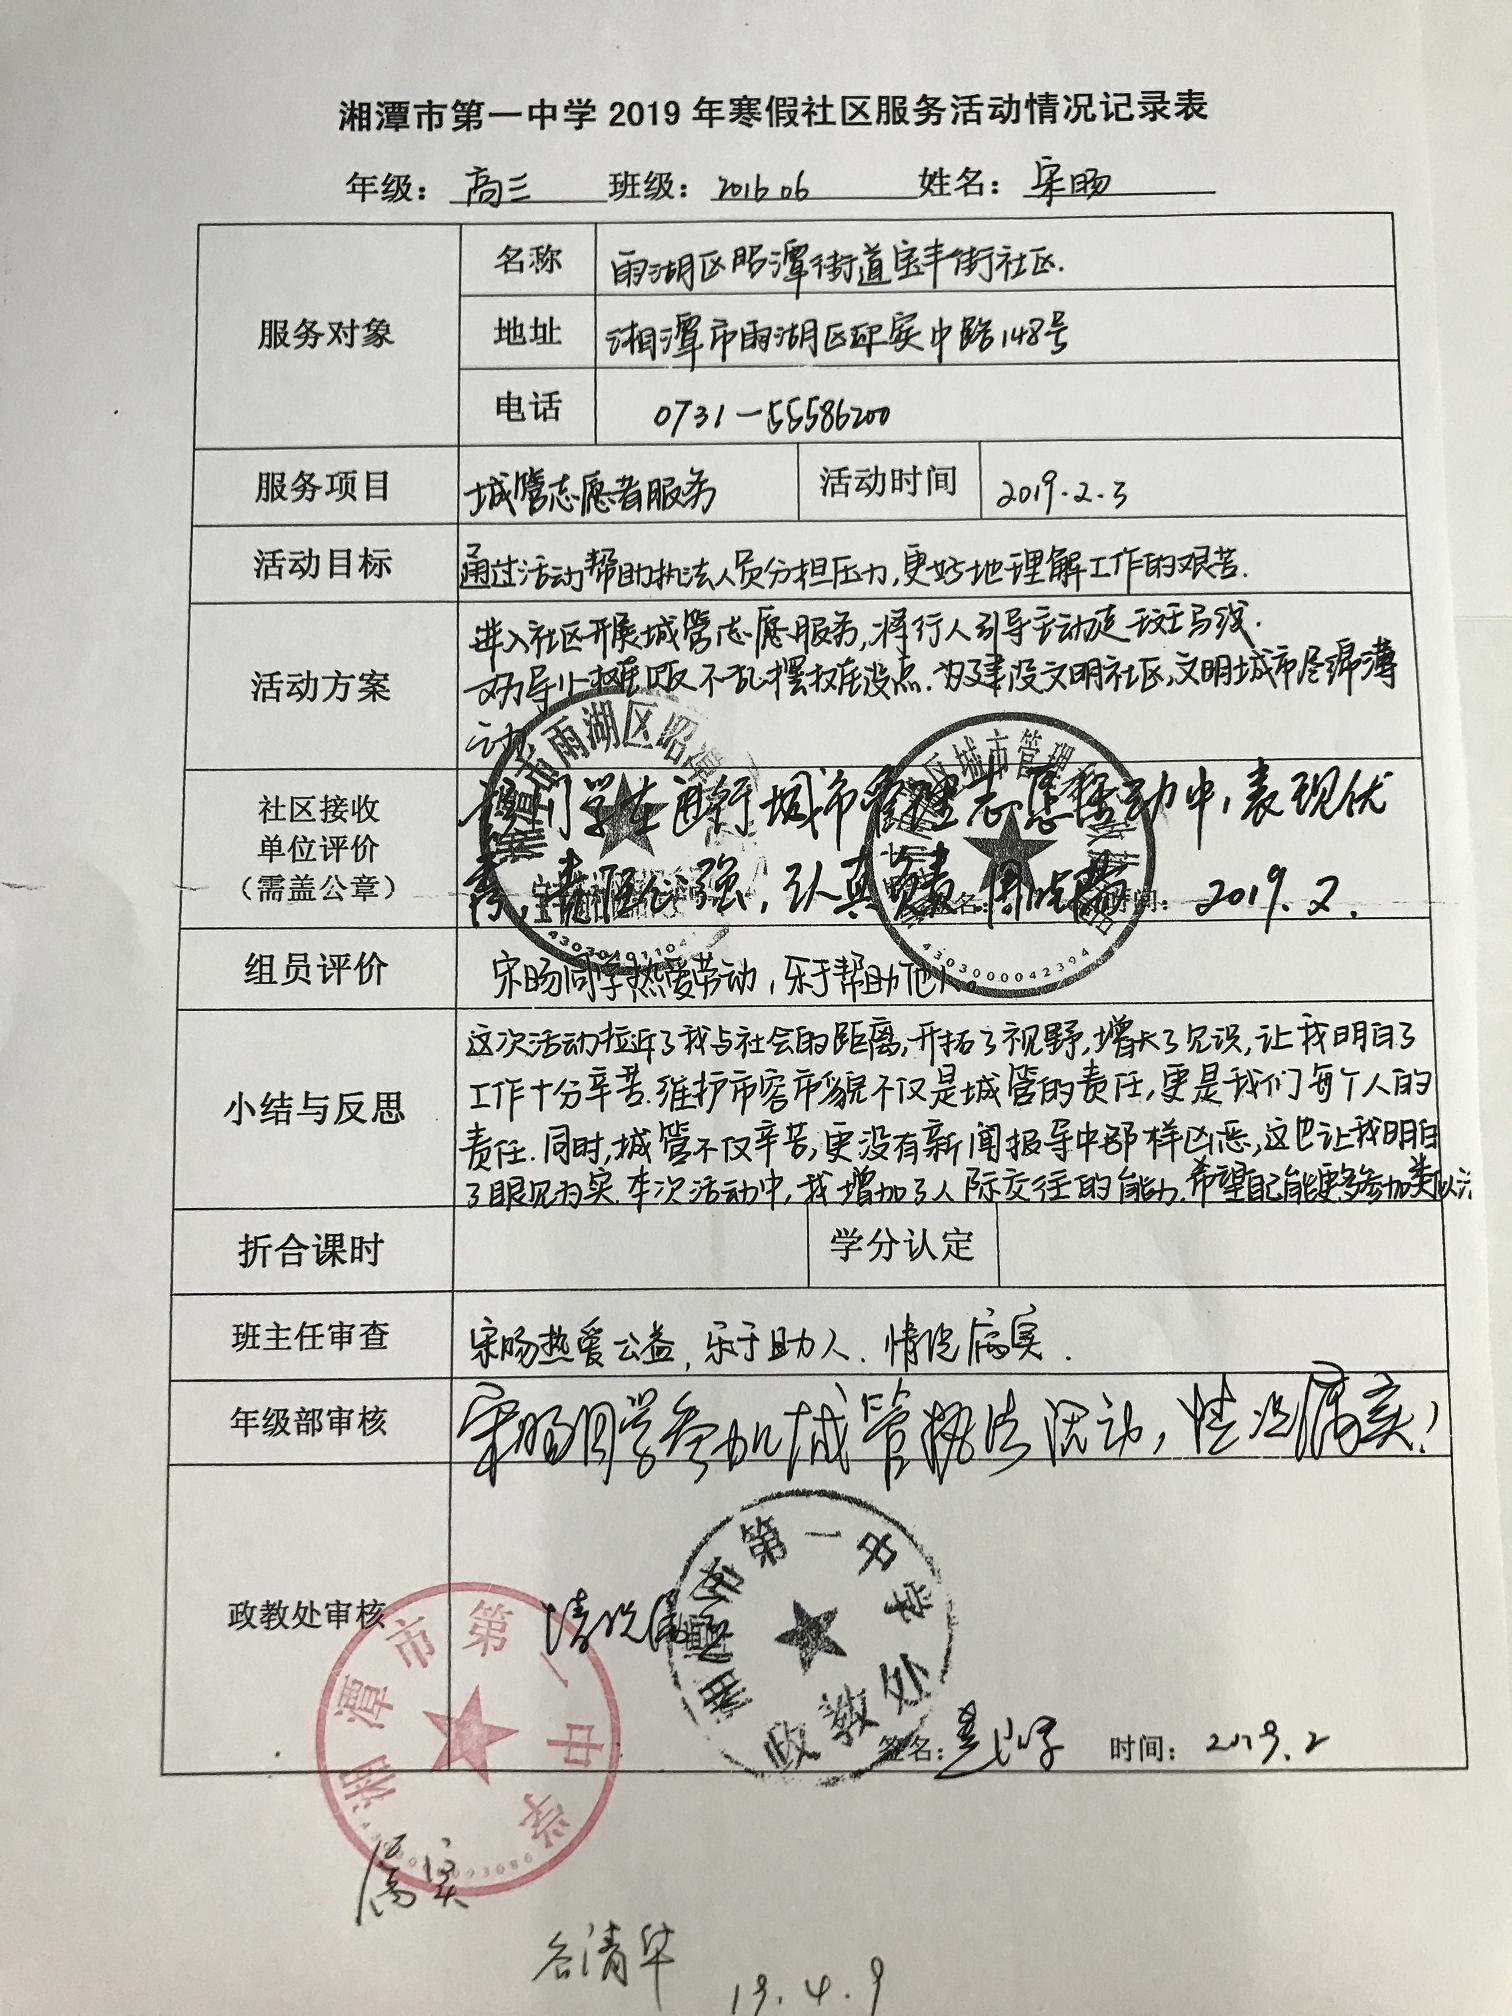 湘潭市第一中学 2019 年寒假社区服务活动情况记录表
年级：高三 班级：201606 姓名：宋旸
服务对象 名称 雨湖区昭潭街道宝丰街社区.
地址 湘潭市雨湖区中路148号
电话 0731-55586200
服务项目 城管志愿者服务 活动时间 2019.2.3
活动目标 通过活动帮助执法人员分担压力,更好地理解工作的艰苦.
活动方案 进入社区开展城管志愿服务,将行人引导主动走斑马线.
劝导小摊贩不乱摆摊设点.为建设文明社区,文明城市尽绵薄
之力
社区接收
单位评价
（需盖公章）
同学在进行城市管理志愿活动中,表现优
秀,责任心强,认真负责. 时间： 2019.2.
湘潭市雨湖区昭潭
区城市管理
4303000042394
组员评价 宋旸同学热爱劳动,乐于帮助他人.
小结与反思 这次活动拉近了我与社会的距离,开拓了视野,增长了见识,让我明白了
工作十分辛苦.维护市容市貌不仅是城管的责任,更是我们每个人的
责任.同时,城管不仅辛苦,更没有新闻报导中那样凶恶,这也让我明白
了眼见为实.本次活动中,我增加了人际交往的能力.希望自己能更多参加类似
折合课时 学分认定
班主任审查 宋旸热爱公益,乐于助人.情况属实.
年级部审核 宋旸同学参加城管执法活动,情况属实!
政教处审核 情况属实
市第一中学
政教处
签名： 时间： 2019.2
湘潭市第一中学
属实
谷清华
19.4.9